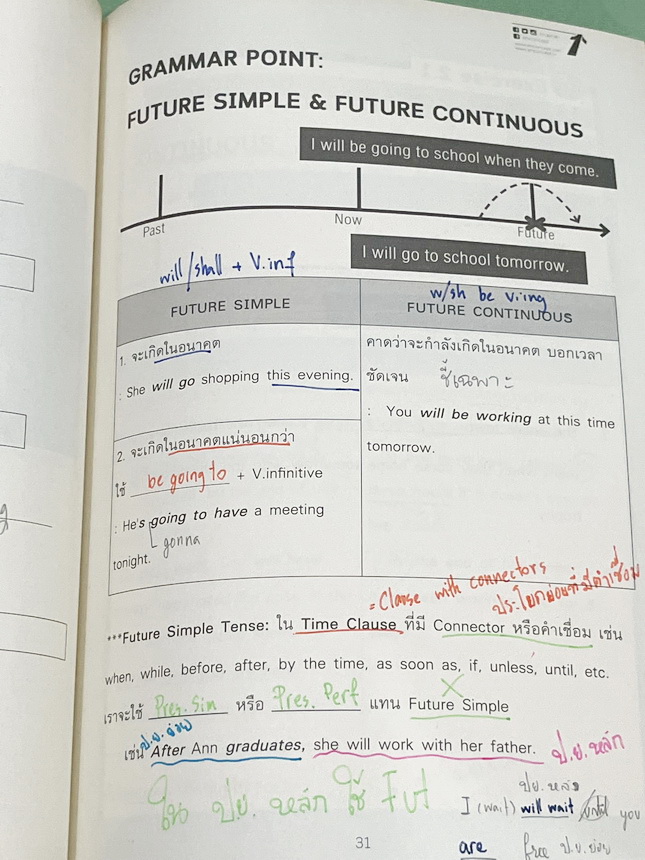 GRAMMAR POINT:
FUTURE SIMPLE & FUTURE CONTINUOUS
I will be going to school when they come.
Past
Now
Future
I will go to school tomorrow.
will/shall + V.inf
w/sh be v.ing
FUTURE SIMPLE
FUTURE CONTINUOUS
1. จะเกิดในอนาคต
: She will go shopping this evening.
2. จะเกิดในอนาคตแน่นอนกว่า
ใช้ be going to + V.infinitive
: He's going to have a meeting
gonna
tonight.
คาดว่าจะกำลังเกิดในอนาคต บอกเวลา
ชัดเจน ชี้เฉพาะ
: You will be working at this time
tomorrow.
= Clause with connectors
ประโยคย่อยที่มีคำเชื่อม
***Future Simple Tense: ใน Time Clause ที่มี Connector หรือคำเชื่อม เช่น
when, while, before, after, by the time, as soon as, if, unless, until, etc.
เราจะใช้ Pres. Sim หรือ Pres. Perf แทน Future Simple
ป.ย.ย่อย
เช่น After Ann graduates, she will work with her father. ป.ย.หลัก
ใน ปย. หลัก ใช้ Fut
ปย. หลัก
I (wait) will wait until you
are free ป.ย.ย่อย
31